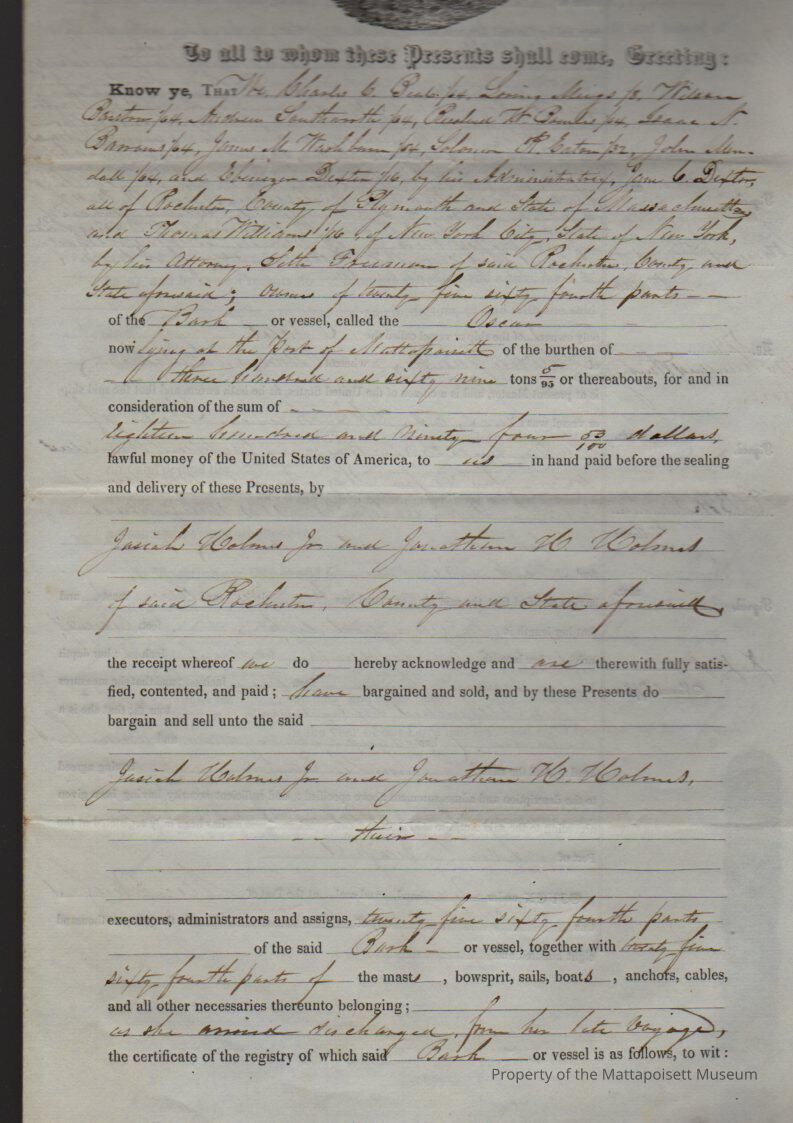 To all to whom these Presents shall come, Greeting:
Know ye, That We, Charles C. Loring Meigs Wilson
Barstow 1/64, Andrew Southworth 1/64, W. Isaac N.
Barrows 1/64, James M. Washburn 1/64, Solomon K. Eaton 1/32, John Men-
dall 1/64, and Ebenezer Dexter 1/16, by his Administratrix, Jane C. Dexter,
all of Rochester, County of Plymouth and State of Massachusetts,
and Thomas Williams 1/16 of New York City, State of New York,
by his Attorney, Seth Freeman of said Rochester, County and
State aforesaid; owners of twenty five sixty fourth parts — —
of the Bark — or vessel, called the Oscar
now lying at the Port of Mattapoisett of the burthen of — — —
— — three hundred and sixty nine tons 5/95 or thereabouts, for and in
consideration of the sum of — — — —
Eighteen hundred and ninety four 53/100 dollars,
lawful money of the United States of America, to us in hand paid before the sealing
and delivery of these Presents, by
Josiah Holmes Jr and Jonathan H Holmes
of said Rochester, County and State aforesaid,
the receipt whereof we do hereby acknowledge and are therewith fully satis-
fied, contented, and paid; have bargained and sold, and by these Presents do
bargain and sell unto the said
Josiah Holmes Jr and Jonathan H. Holmes,
— — their — —
executors, administrators and assigns, twenty five sixty fourth parts
of the said Bark — or vessel, together with twenty five
sixty fourth parts of the masts, bowsprit, sails, boats, anchors, cables,
and all other necessaries thereunto belonging;
as she discharged from her late voyage,
the certificate of the registry of which said Bark — or vessel is as follows, to wit:
Property of the Mattapoisett Museum